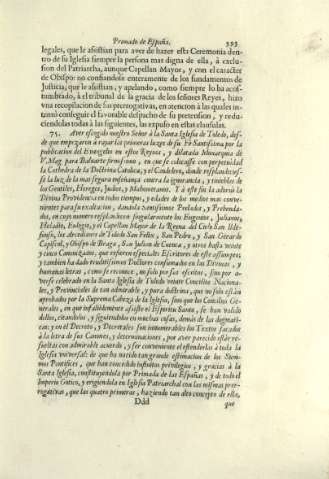 Primado de España. 393
legales, que le assistian para aver de hazer esta Ceremonia den-
tro de su Iglesia siempre la persona mas digna de ella, à exclu-
sion del Patriarcha, aunque Capellan Mayor, y con el caracter
de Obispo: no confiandolo enteramente de los fundamentos de
Justicia, que le assistian, y apelando, como siempre lo ha acos-
tumbrado, à el tribunal de la gracia de los señores Reyes, hizo
vna recopilacion de sus prerrogativas, en atencion à las quales in-
tentò conseguir el favorable despacho de su pretension, y redu-
ciendolas todas à las siguientes, las expuso en estas clausulas.
75. Aver escogido nuestro Señor à la Santa Iglesia de Toledo, des-
de que empezaron à rayar las primeras luzes de su Fè Santissima por la
publicacion del Evangelio en estos Reynos, y dilatada Monarquia de
V. Mag. para Baluarte firmissimo, en que se colocasse con perpetuidad
la Cathedra de la Doctrina Catolica, y el Candelero, donde resplandecies-
se la luz de la mas segura enseñança contra la ignorancia, y tinieblas de
los Gentiles, Hereges, Judios, y Mahometanos. Y à este fin la assistiò la
Divina Providencia en todos tiempos, y edades de los medios mas conve-
nientes para su exaltacion, dandola santissimos Prelados, y Prebenda-
dos, en cuyo numero resplandecen singularmente los Eugenios, Julianos,
Heladio, Eulogio, y el Capellan Mayor de la Reyna del Cielo San Ilde-
fonso, los Arcedianos de Toledo San Felix, San Pedro, y San Gerardo
Capiscol, y Obispo de Braga, San Julian de Cuenca, y otros hasta veinte
y cinco Canonizados, que refieren essenciales Escritores de este assumpto;
y tambien ha dado eruditissimos Doctores consumados en las Divinas, y
humanas letras, como se reconoce, no solo por sus escritos, sino por a-
verse celebrado en la Santa Iglesia de Toledo veinte Concilios Naciona-
les, y Provinciales de tan admirable, y pura doctrina, que no solo estàn
aprobados por la Suprema Cabeza de la Iglesia, sino que los Concilios Ge-
nerales, en que infaliblemente assiste el Espiritu Santo, se han valido
dellos, citandolos, y siguiendolos en muchas cosas, demàs de las dogmati-
cas: y en el Decreto, y Decretales son innumerables los Textos sacados
à la letra de sus Canones, y determinaciones, por aver parecido estàr re-
sueltas con admirable acuerdo, y ser conveniente el estenderlas à toda la
Iglesia vniversal: de que ha nacido tan grande estimacion de los Sum-
mos Pontifices, que han concedido infinitos privilegios, y gracias à la
Santa Iglesia, constituyendola por Primada de las Españas, y de todo el
Imperio Gotico, y erigiendola en Iglesia Patriarchal con las mismas prer-
rogativas, que las quatro primeras, haziendo tan alto concepto de ella,
Ddd que